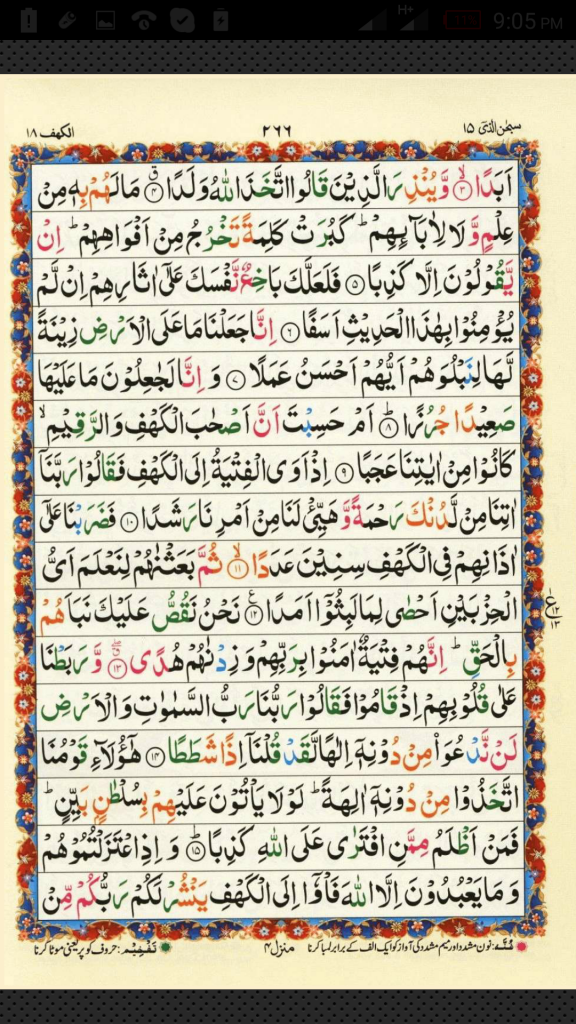 H+ 11% 9:05 PM
سبحٰن الذی ۱۵ ۲۶۶ الکهف ۱۸
اَبَدًا ۙ﴿۳﴾ وَّیُنْذِرَ الَّذِیْنَ قَالُوا اتَّخَذَ اللّٰهُ وَلَدًا ۗ﴿۴﴾ مَا لَهُمْ بِهٖ مِنْ
عِلْمٍ وَّ لَا لِاٰبَآىِٕهِمْ ؕ كَبُرَتْ كَلِمَةً تَخْرُجُ مِنْ اَفْوَاهِهِمْ ؕ اِنْ
یَّقُوْلُوْنَ اِلَّا كَذِبًا ﴿۵﴾ فَلَعَلَّكَ بَاخِعٌ نَّفْسَكَ عَلٰۤی اٰثَارِهِمْ اِنْ لَّمْ
یُؤْمِنُوْا بِهٰذَا الْحَدِیْثِ اَسَفًا ﴿۶﴾ اِنَّا جَعَلْنَا مَا عَلَی الْاَرْضِ زِیْنَةً
لَّهَا لِنَبْلُوَهُمْ اَیُّهُمْ اَحْسَنُ عَمَلًا ﴿۷﴾ وَ اِنَّا لَجٰعِلُوْنَ مَا عَلَیْهَا
صَعِیْدًا جُرُزًا ؕ﴿۸﴾ اَمْ حَسِبْتَ اَنَّ اَصْحٰبَ الْكَهْفِ وَ الرَّقِیْمِ ۙ
كَانُوْا مِنْ اٰیٰتِنَا عَجَبًا ﴿۹﴾ اِذْ اَوَی الْفِتْیَةُ اِلَی الْكَهْفِ فَقَالُوْا رَبَّنَاۤ
اٰتِنَا مِنْ لَّدُنْكَ رَحْمَةً وَّ هَیِّئْ لَنَا مِنْ اَمْرِنَا رَشَدًا ﴿۱۰﴾ فَضَرَبْنَا عَلٰۤی
اٰذَانِهِمْ فِی الْكَهْفِ سِنِیْنَ عَدَدًا ۙ﴿۱۱﴾ ثُمَّ بَعَثْنٰهُمْ لِنَعْلَمَ اَیُّ
الْحِزْبَیْنِ اَحْصٰی لِمَا لَبِثُوْۤا اَمَدًا ﴿۱۲﴾ نَحْنُ نَقُصُّ عَلَیْكَ نَبَاَهُمْ
بِالْحَقِّ ؕ اِنَّهُمْ فِتْیَةٌ اٰمَنُوْا بِرَبِّهِمْ وَ زِدْنٰهُمْ هُدًی ﴿۱۳﴾ وَّ رَبَطْنَا
عَلٰی قُلُوْبِهِمْ اِذْ قَامُوْا فَقَالُوْا رَبُّنَا رَبُّ السَّمٰوٰتِ وَ الْاَرْضِ
لَنْ نَّدْعُوَاۡ مِنْ دُوْنِهٖۤ اِلٰهًا لَّقَدْ قُلْنَاۤ اِذًا شَطَطًا ﴿۱۴﴾ هٰۤؤُلَآءِ قَوْمُنَا
اتَّخَذُوْا مِنْ دُوْنِهٖۤ اٰلِهَةً ؕ لَوْ لَا یَاْتُوْنَ عَلَیْهِمْ بِسُلْطٰنٍۭ بَیِّنٍ ؕ
فَمَنْ اَظْلَمُ مِمَّنِ افْتَرٰی عَلَی اللّٰهِ كَذِبًا ؕ﴿۱۵﴾ وَ اِذِ اعْتَزَلْتُمُوْهُمْ
وَ مَا یَعْبُدُوْنَ اِلَّا اللّٰهَ فَاْوٗۤا اِلَی الْكَهْفِ یَنْشُرْ لَكُمْ رَبُّكُمْ مِّنْ
غُنَّہ : نون مشدد اور میم مشدد کی آواز کو ایک الف کے برابر لمبا کرنا منزل ۴ تَفْخِیْم : حروف کو پُر یعنی موٹا کرنا